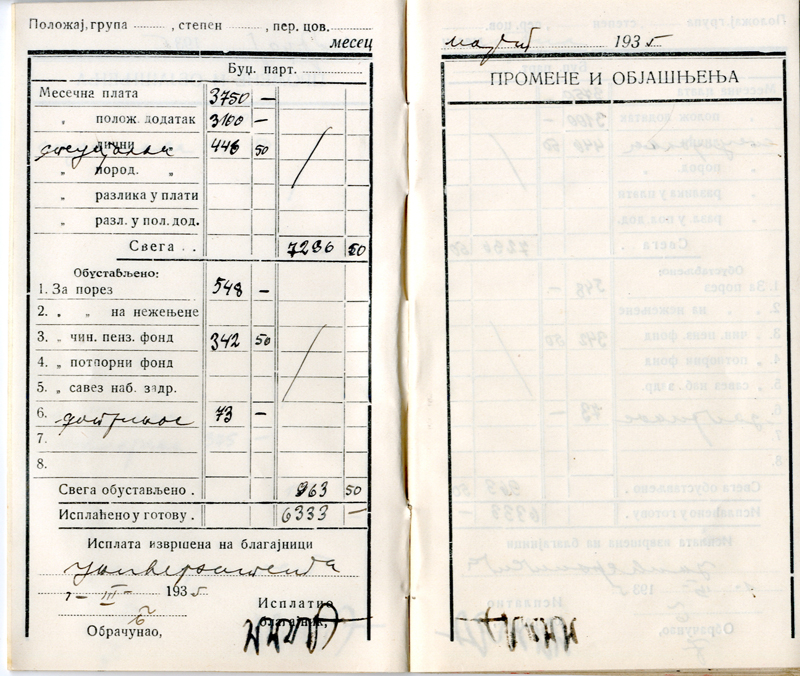 Положај, група , степен , пер. цов.
месец март 1935
Буџ. парт.
Месечна плата 3750 —
„ полож. додатак 3100 —
„ лични 446 50
„ пород. „
„ разлика у плати
„ разл. у пол. дод.
Свега . . 7296 50
Обустављено:
1. За порез 548 —
2. „ „ на нежењене
3. „ чин. пенз. фонд 342 50
4. „ потпорни фонд
5. „ савез наб. задр.
6. 73 —
7.
8.
Свега обустављено . 963 50
Исплаћено у готову . 6333 —
Исплата извршена на благајници
Универзитета
1 - III - 1935
Исплатио
благајник,
Обрачунао,
ПРОМЕНЕ И ОБЈАШЊЕЊА